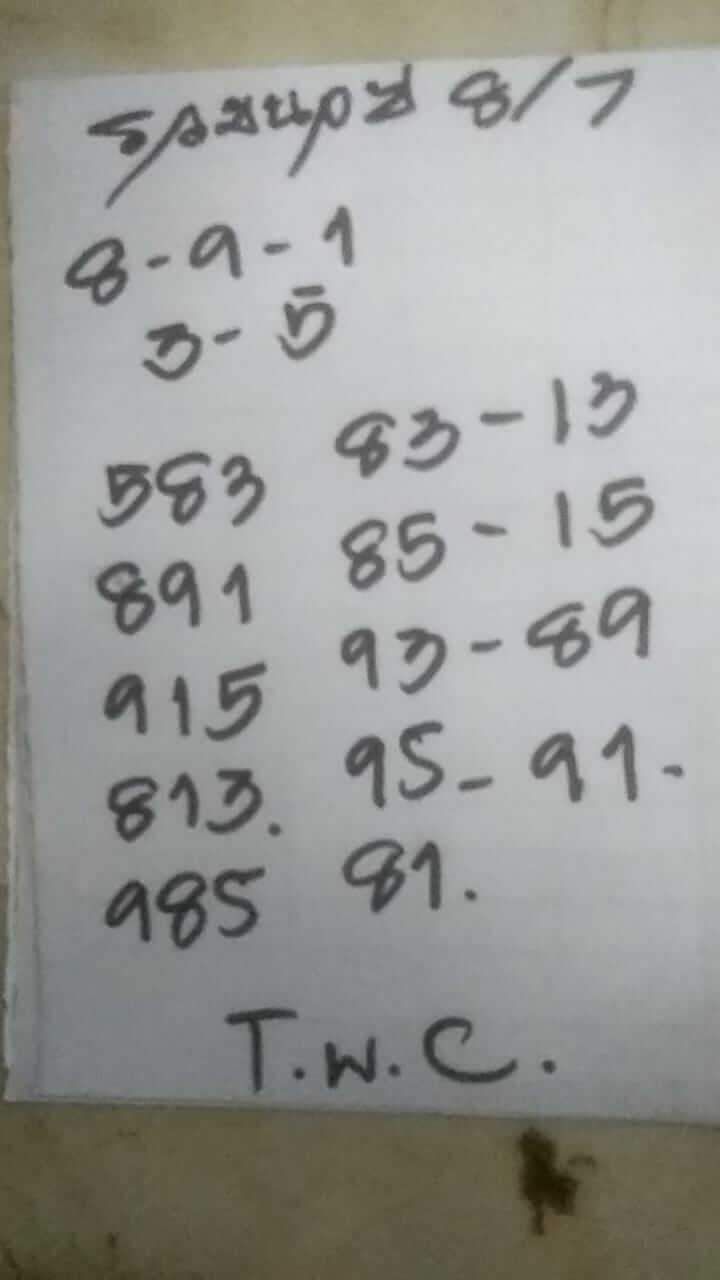 8/7
8-9-1
3-5
583 83-13
891 85-15
915 93-89
813. 95-91-
985 81.
T.W.C.